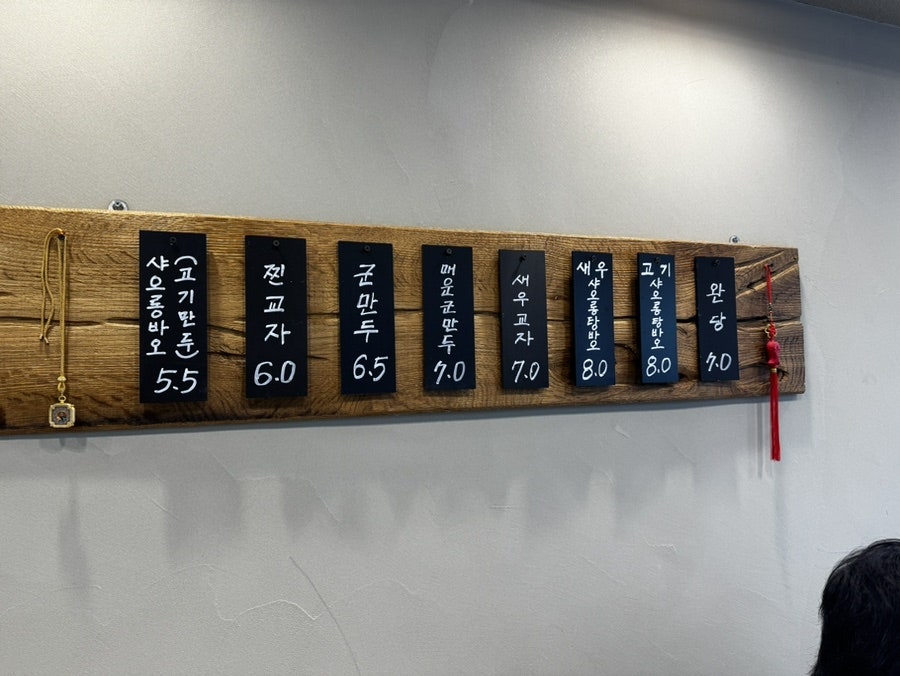 샤오롱바오
(고기만두)
5.5
찐교자
6.0
군만두
6.5
매운군만두
7.0
새우교자
7.0
새우
샤오롱탕바오
8.0
고기
샤오롱탕바오
8.0
완당
7.0